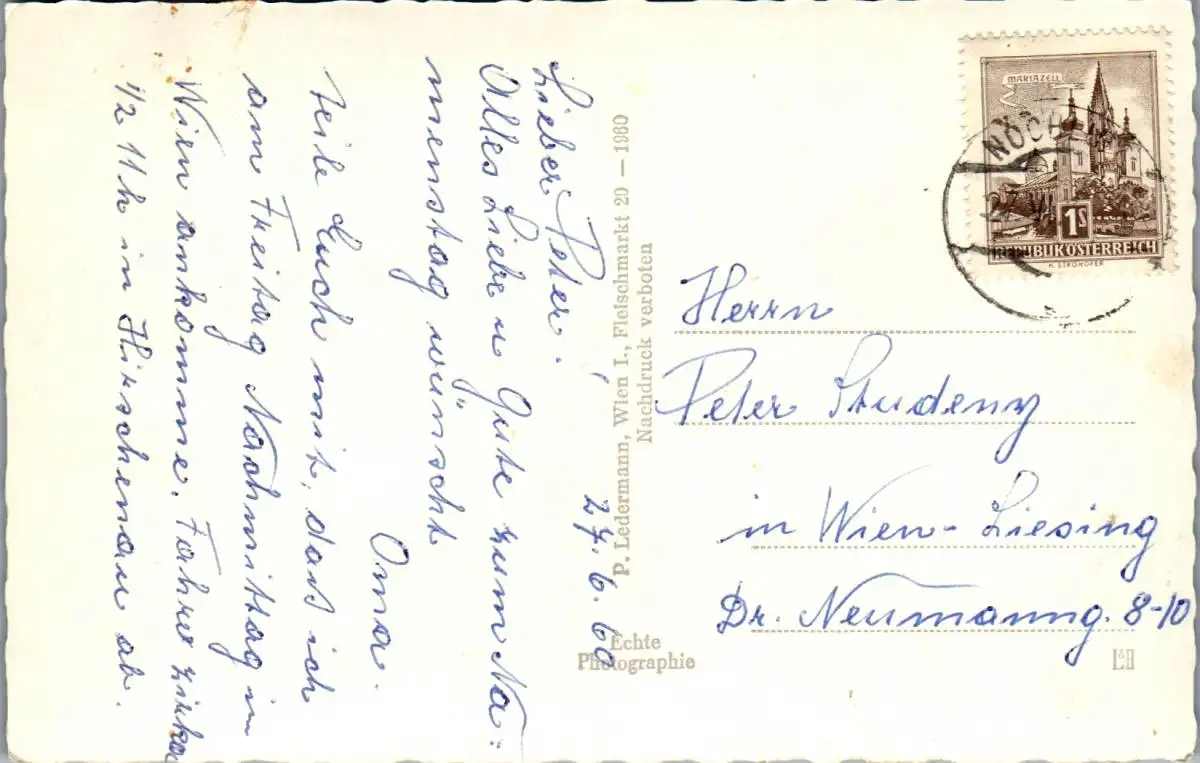 Lieber Peter.
27.6.60
Alles Liebe u Gute zum Na-
menstag wünscht
Oma.
teile Euch mit, das ich
am Freitag Nachmittag in
Wien ankomme. Fahre zirka
1/2 11h in Hirschenau ab.
P. Ledermann, Wien I., Fleischmarkt 20 — 1960
Nachdruck verboten
Echte
Photographie
MARIAZELL
1S
REPUBLIK ÖSTERREICH
H. STROHOFER
NÖCH
27. VI
Herrn
Peter Studeny
in Wien-Liesing
Dr. Neumanng. 8-10
L&H